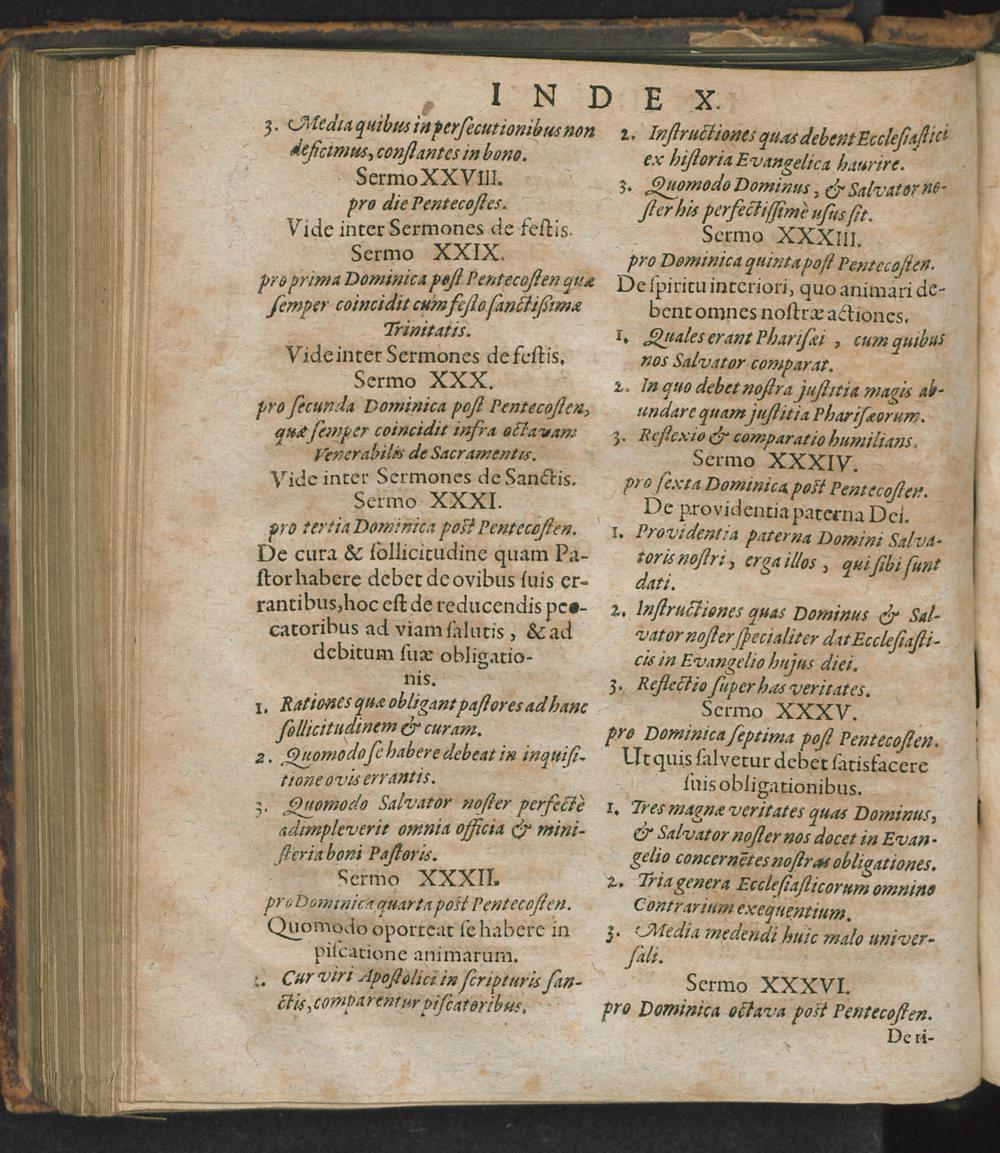 INDEX.
3. Media quibus in persecutionibus non
deficimus, constantes in bono.
Sermo XXVIII.
pro die Pentecostes.
Vide inter Sermones de festis.
Sermo XXIX.
pro prima Dominica post Pentecosten quæ
semper coincidit cum festo sanctissimæ
Trinitatis.
Vide inter Sermones de festis.
Sermo XXX.
pro secunda Dominica post Pentecosten,
quæ semper coincidit infra octavam
Venerabilis de Sacramentis.
Vide inter Sermones de Sanctis.
Sermo XXXI.
pro tertia Dominica post Pentecosten.
De cura & sollicitudine quam Pa-
stor habere debet de ovibus suis er-
rantibus, hoc est de reducendis pec-
catoribus ad viam salutis, & ad
debitum suæ obligatio-
nis.
1. Rationes quæ obligant pastores ad hanc
sollicitudinem & curam.
2. Quomodo se habere debeat in inquisi-
tione ovis errantis.
3. Quomodo Salvator noster perfectè
adimpleverit omnia officia & mini-
steria boni Pastoris.
Sermo XXXII.
pro Dominica quarta post Pentecosten.
Quomodo oporteat se habere in
piscatione animarum.
1. Cur viri Apostolici in scripturis san-
ctis, comparentur piscatoribus.
2. Instructiones quas debent Ecclesiastici
ex historia Evangelica haurire.
3. Quomodo Dominus, & Salvator no-
ster his perfectissimè usus sit.
Sermo XXXIII.
pro Dominica quinta post Pentecosten.
De spiritu interiori, quo animari de-
bent omnes nostræ actiones.
1. Quales erant Pharisæi, cum quibus
nos Salvator comparat.
2. In quo debet nostra justitia magis ab-
undare quam justitia Pharisæorum.
3. Reflexio & comparatio humilians.
Sermo XXXIV.
pro sexta Dominica post Pentecosten.
De providentia paterna Dei.
1. Providentia paterna Domini Salva-
toris nostri, erga illos, qui sibi sunt
dati.
2. Instructiones quas Dominus & Sal-
vator noster specialiter dat Ecclesiasti-
cis in Evangelio hujus diei.
3. Reflectio super has veritates.
Sermo XXXV.
pro Dominica septima post Pentecosten.
Ut quis salvetur debet satisfacere
suis obligationibus.
1. Tres magnæ veritates quas Dominus,
& Salvator noster nos docet in Evan-
gelio concernẽtes nostras obligationes.
2. Tria genera Ecclesiasticorum omnino
Contrarium exequentium.
3. Media medendi huic malo univer-
sali.
Sermo XXXVI.
pro Dominica octava post Pentecosten.
De ti-